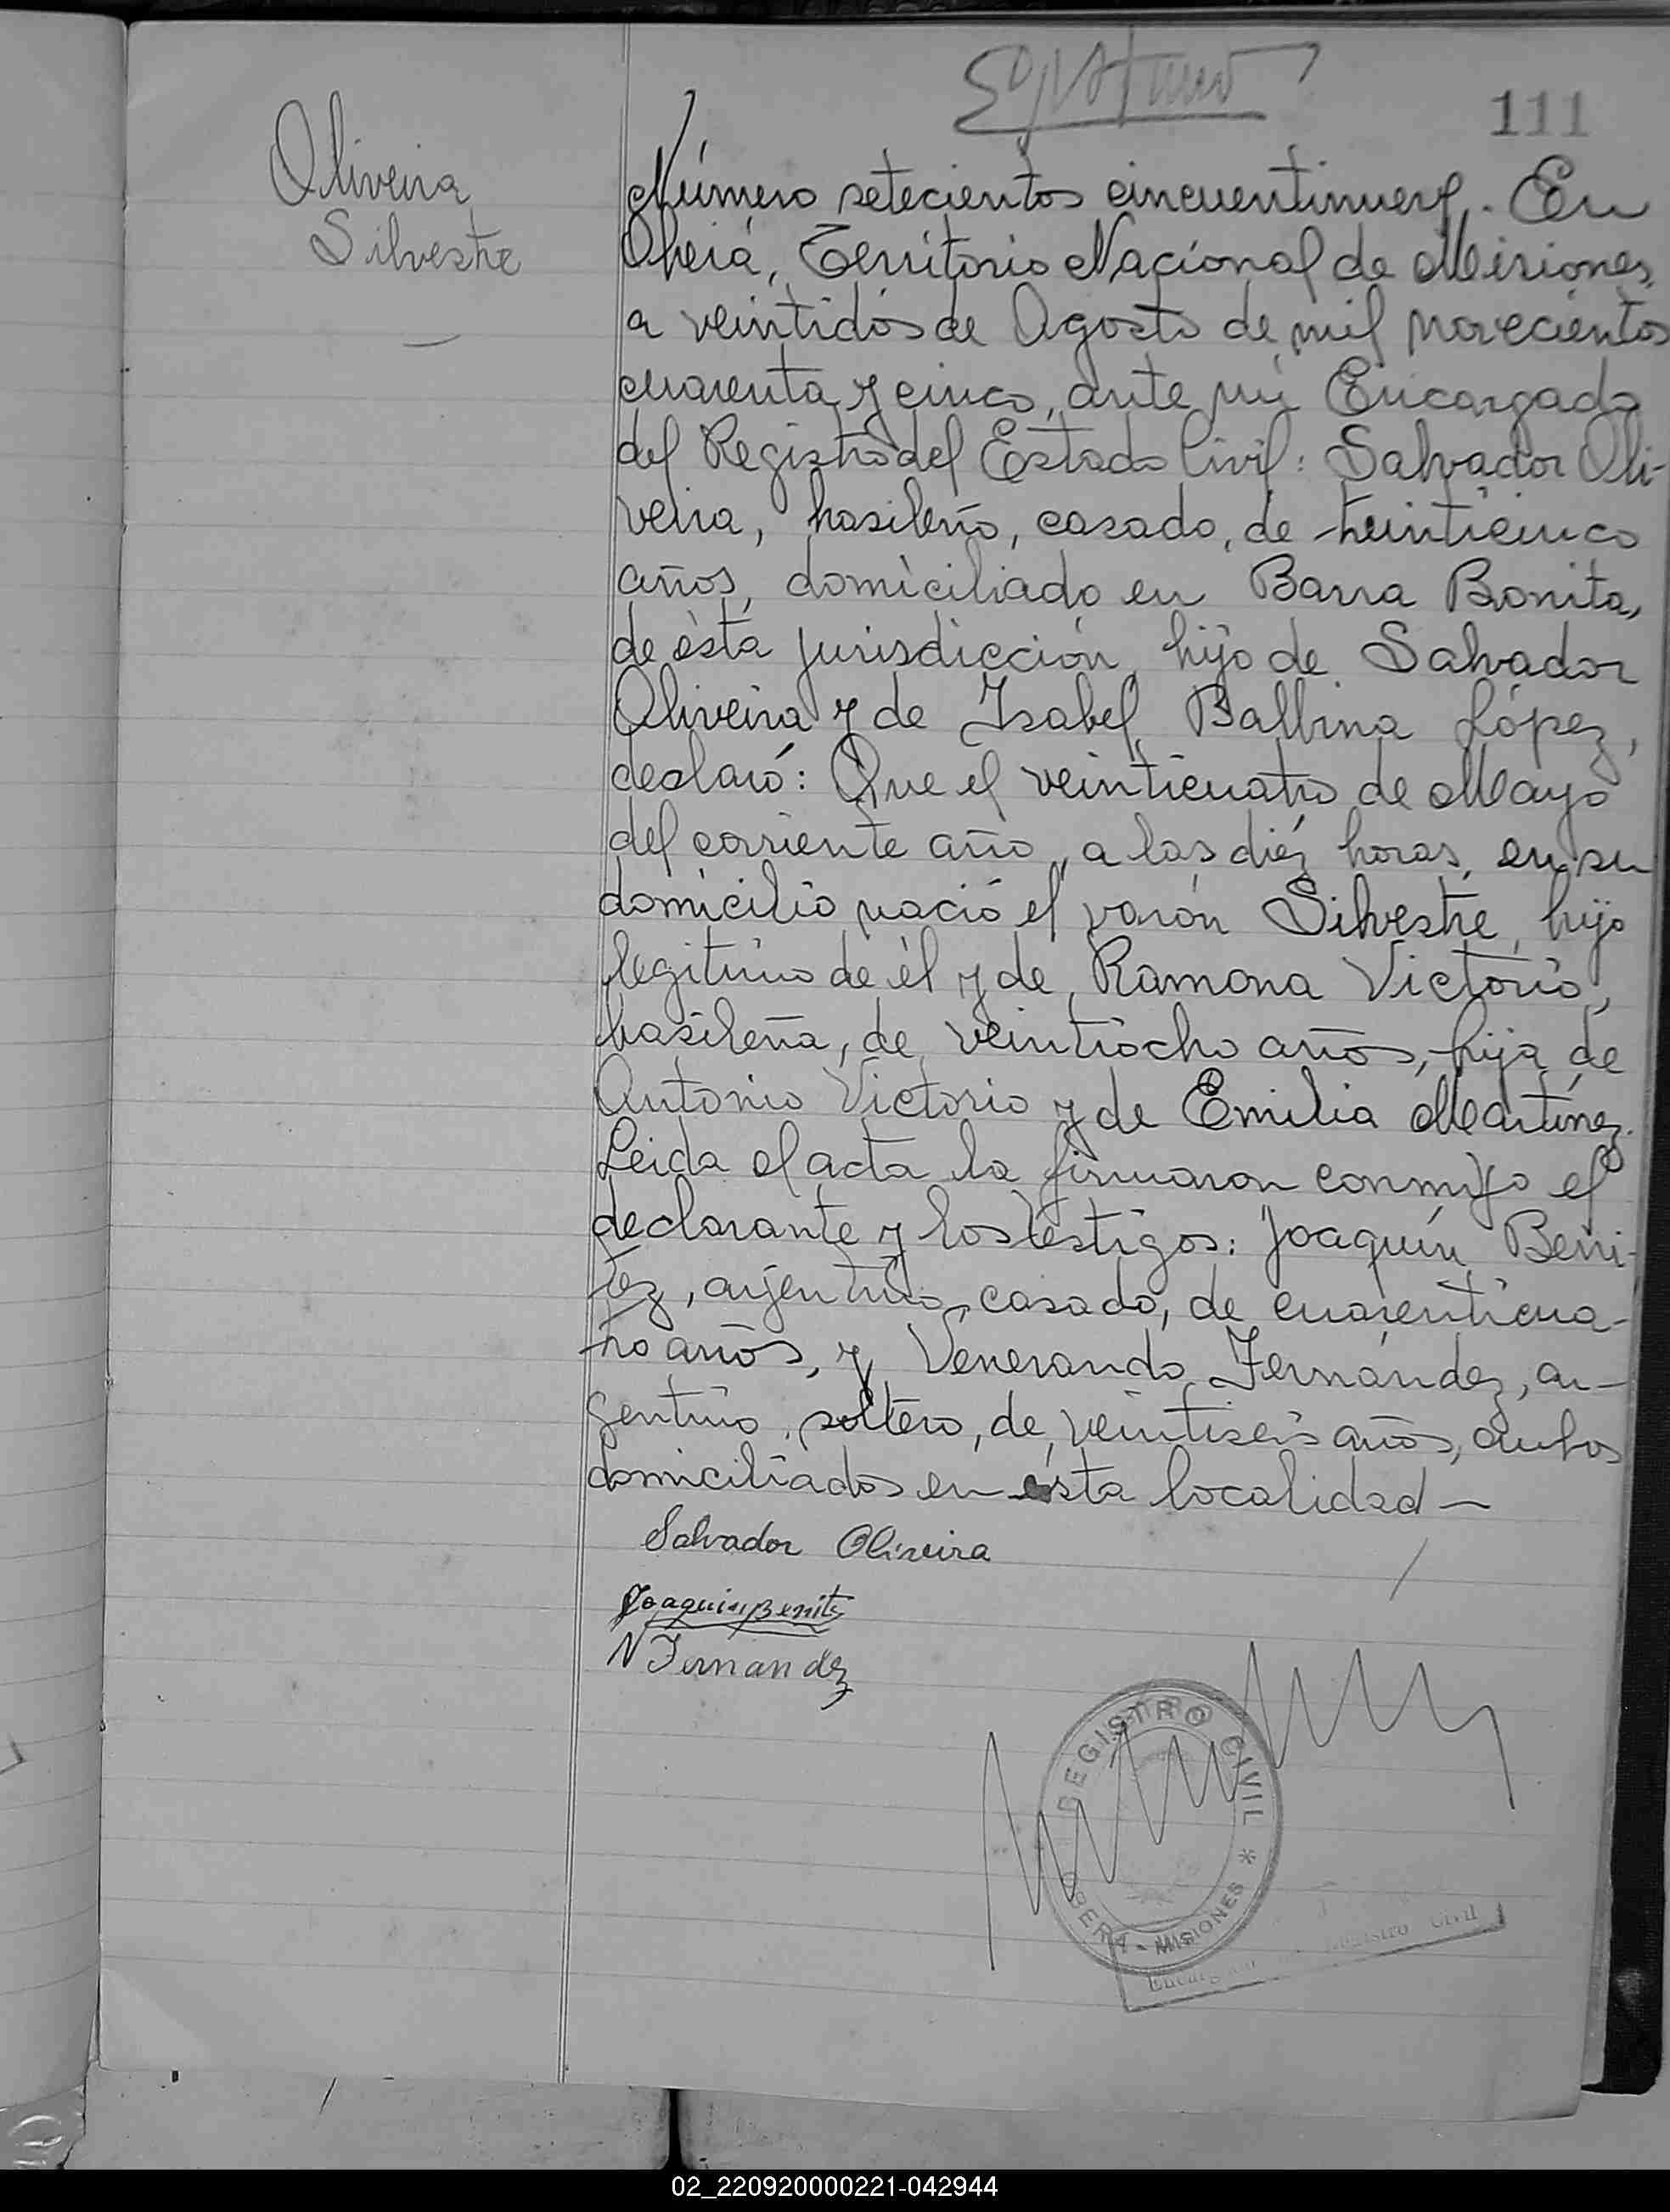 111
Oliveira
Silvestre
Número setecientos cincuentinueve. En
Oberá, Territorio Nacional de Misiones,
a veintidós de Agosto de mil novecientos
cuarenta y cinco, ante mí Encargado
del Registro del Estado Civil: Salvador Oli-
veira, brasileño, casado, de treinticinco
años, domiciliado en Barra Bonita,
de ésta jurisdicción, hijo de Salvador
Oliveira y de Isabel Balbina López,
declaró: Que el veinticuatro de Mayo
del corriente año, a las diéz horas, en su
domicilio nació el varón Silvestre, hijo
legítimo de él y de Ramona Victorio,
brasileña, de veintiocho años, hija de
Antonio Victorio y de Emilia Martínez.
Leida el acta la firmaron conmigo el
declarante y los testigos: Joaquín Beni-
tez, argentino, casado, de cuarenticua-
tro años, y Venerando Fernández, ar-
gentino, soltero, de veintiseis años, ambos
domiciliados en ésta localidad —
Salvador Oliveira
Joaquin Benitez
V Fernandez
REGISTRO CIVIL
OBERA - MISIONES *
Registro Civil
02_220920000221-042944